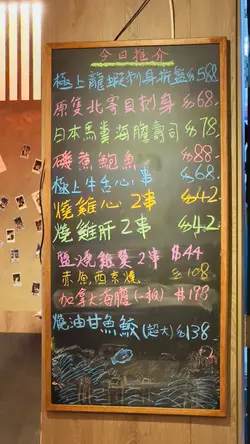 今日推介
極上龍蝦刺身拼盤 $588
原隻北寄貝刺身 $68
日本馬糞海膽壽司 $78
磯煮鮑魚 $88
極上牛舌心1串 $68
燒雞心2串 $42
燒雞肝2串 $42
鹽燒雞翼2串 $44
赤魚西京燒 $108
加拿大海膽(一板) $193
燒油甘魚鮫(超大) $138